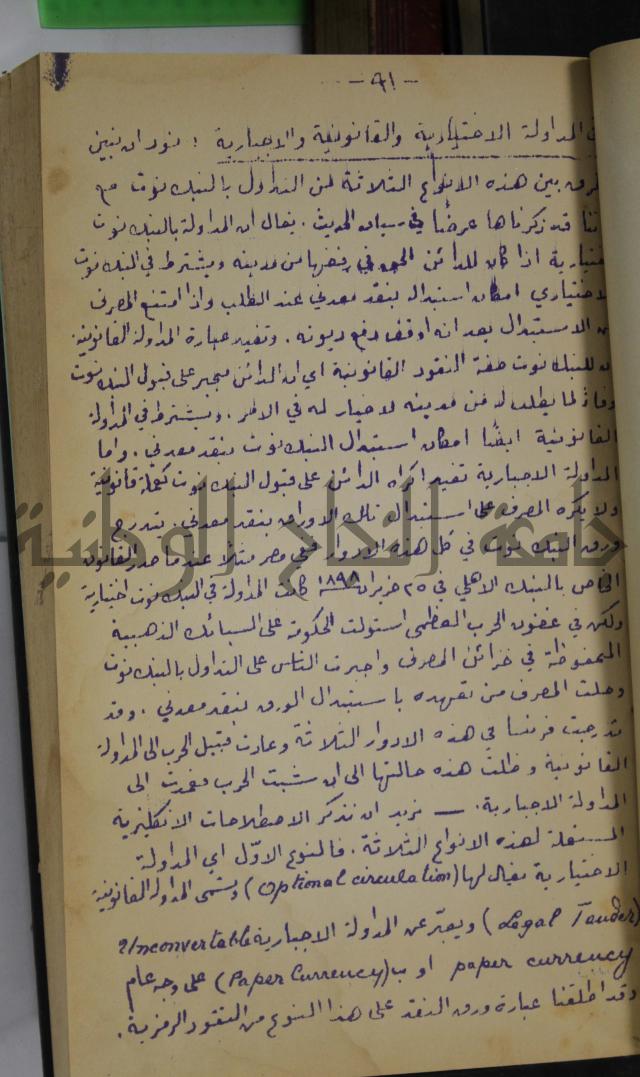 - ٩١ -
في المداولة الاختيارية والقانونية والاجبارية : نود ان نبين
الفرق بين هذه الانواع الثلاثة من التداول بالبنك نوت مع
اننا قد ذكرناها عرضًا في سياق الحديث . يقال ان المداولة بالبنك نوت
اختيارية اذا كان للدائن الحق في رفضها من مدينه ويشترط في البنك نوت
الاختياري امكان استبداله بنقد معدني عند الطلب واذا امتنع المصرف
عن الاستبدال يعد انه اوقف دفع ديونه . وتفيد عبارة المداولة القانونية
ان للبنك نوت صفة النقود القانونية اي ان الدائن مجبر على قبول البنك نوت
وفاءً لما يطلب له من مدينه لا خيار له في الامر . ويشترط في المداولة
القانونية ايضًا امكان استبدال البنك نوت بنقد معدني . واما
المداولة الاجبارية تفيد اكراه الدائن على قبول البنك نوت كعملة قانونية
ولا يكره المصرف على استبدال تلك الاوراق بنقد معدني . تدرج
ورق البنك نوت في كل هذه الادوار ففي مصر مثلًا عندما صدر القانون
الخاص بالبنك الاهلي في ٢٥ حزيران ١٨٩٨ كانت المداولة في البنك نوت اختيارية
ولكن في غضون الحرب العظمى استولت الحكومة على السبائك الذهبية
المحفوظة في خزائن المصرف واجبرت الناس على التداول بالبنك نوت
وحلت المصرف من تعهده باستبدال الورق بنقد معدني . وقد
تدرجت فرنسا في هذه الادوار الثلاثة وعادت قبيل الحرب الى المداولة
القانونية وظلت هذه حالتها الى ان شبت الحرب فعمدت الى
المداولة الاجبارية . — نريد ان نذكر الاصطلاحات الانكليزية
المستعملة لهذه الانواع الثلاثة . فالنوع الاوّل اي المداولة
الاختيارية فيقال لها (Optional circulation) وتسمى المداولة القانونية
(Legal Tender) ويعبّر عن المداولة الاجبارية Unconvertable
paper currency او ب (Paper Currency) على وجه عام
وقد اطلقنا عبارة ورق النقد على هذا النوع من النقود الرمزية .
جامعة النجاح الوطنية